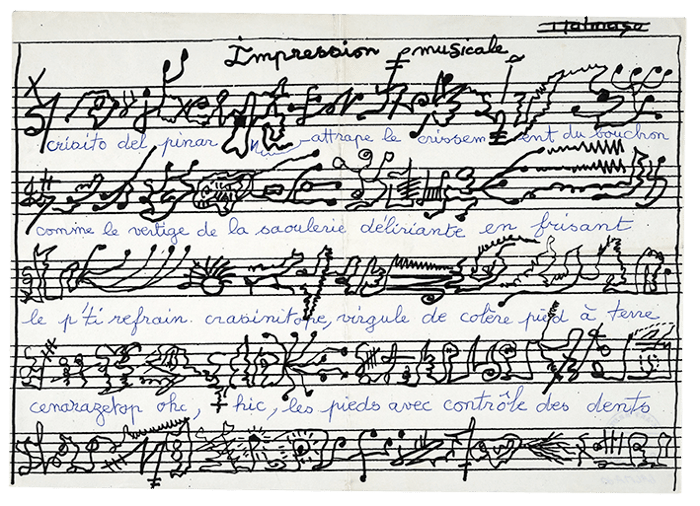 Impression musicale
crisito del pinar attrape le crissement du bouchon
comme le vertige de la saoulerie déliriante en frisant
le p'ti refrain. crasinitope, virgule de colère pied à terre
cenarazetop ohc, hic, les pieds avec contrôle des dents